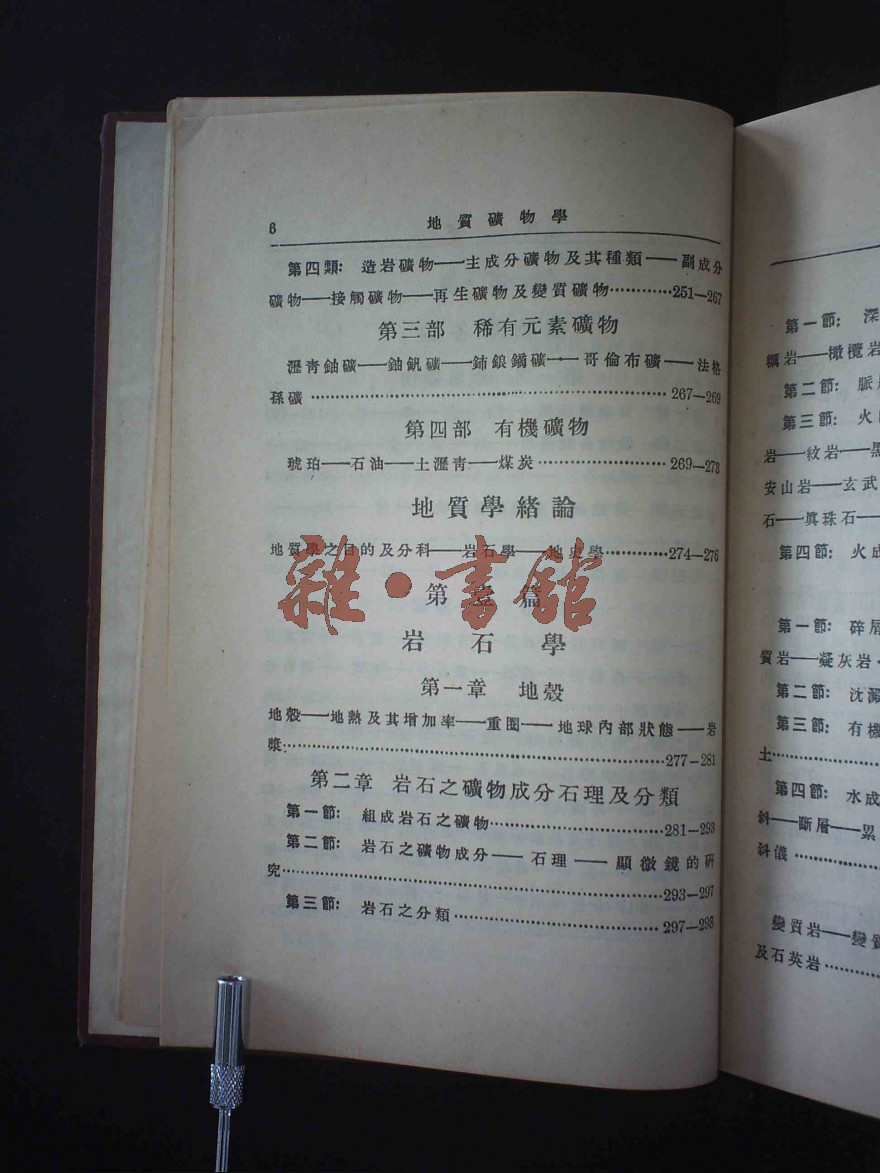 6
地質礦物學
第四類: 造岩礦物——主成分礦物及其種類——副成分
礦物——接觸礦物——再生礦物及變質礦物…………251—267
第三部 稀有元素礦物
瀝青鈾礦——鈾釩礦——鈰鋃鐍礦——哥倫布礦——法格
孫礦……………………………………267—269
第四部 有機礦物
琥珀——石油——土瀝青——煤炭……………269—273
地質學緒論
地質學之目的及分科——岩石學——地史學…………274—276
第壹篇
岩石學
第一章 地殼
地殼——地熱及其增加率——重圈——地球內部狀態——岩
漿……………………………………277—281
第二章 岩石之礦物成分石理及分類
第一節: 組成岩石之礦物………………281—293
第二節: 岩石之礦物成分——石理——顯微鏡的硏
究……………………………………293—297
第三節: 岩石之分類……………………297—298
雜·書館
第一節: 深
糲岩——橄欖岩
第二節: 脈
第三節: 火
岩——紋岩——黑
安山岩——玄武
石——眞珠石——
第四節: 火成
第一節: 碎屑
質岩——凝灰岩
第二節: 沈澱
第三節: 有機
土……
第四節: 水成
斜——斷層——累
斜儀……
變質岩——變質
及石英岩……